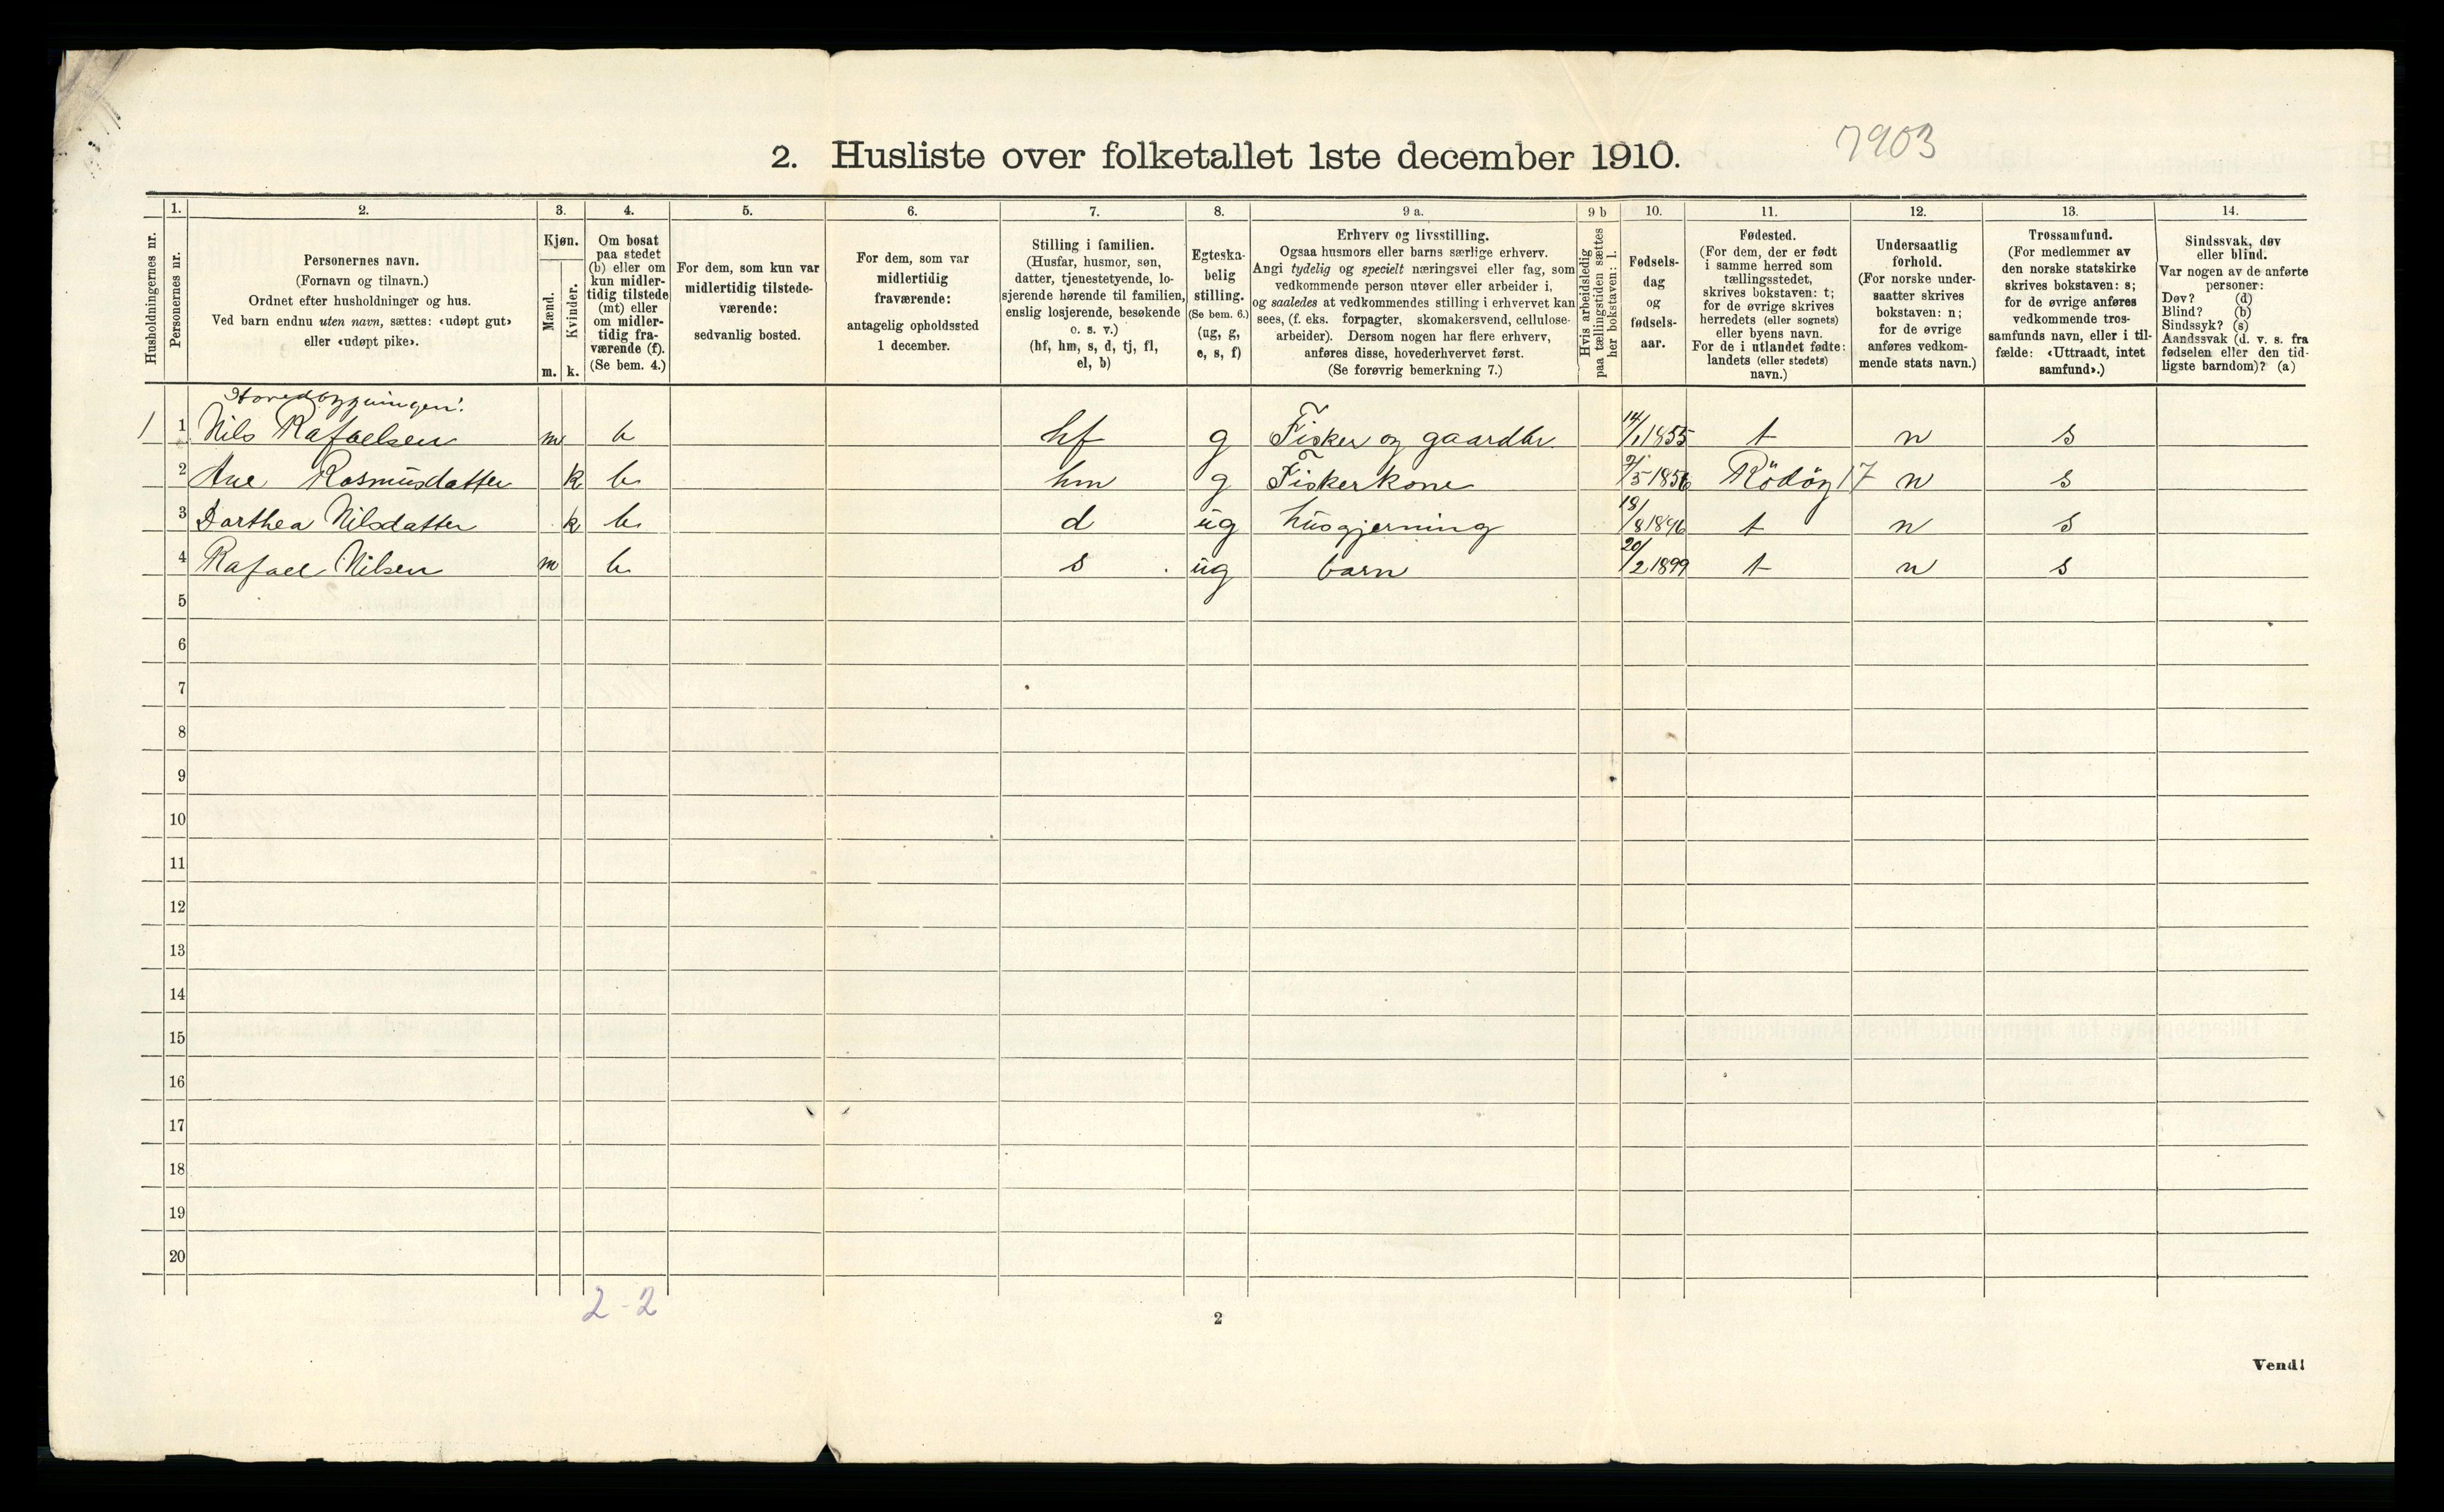 7903
2. Husliste over folketallet 1ste december 1910.
1. 2. 3. 4. 5. 6. 7. 8. 9 a. 9 b 10. 11. 12. 13. 14.
Husholdningernes nr.
Personernes nr.
Personernes navn.
(Fornavn og tilnavn.)
Ordnet efter husholdninger og hus.
Ved barn endnu uten navn, sættes: «udøpt gut»
eller «udøpt pike».
Kjøn.
Mænd.
Kvinder.
m. k.
Om bosat
paa stedet
(b) eller om
kun midler-
tidig tilstede
(mt) eller
om midler-
tidig fra-
værende (f).
(Se bem. 4.)
For dem, som kun var
midlertidig tilstede-
værende:
sedvanlig bosted.
For dem, som var
midlertidig
fraværende:
antagelig opholdssted
1 december.
Stilling i familien.
(Husfar, husmor, søn,
datter, tjenestetyende, lo-
sjerende hørende til familien,
enslig losjerende, besøkende
o. s. v.)
(hf, hm, s, d, tj, fl,
el, b)
Egteska-
belig
stilling.
(Se bem. 6.)
(ug, g,
e, s, f)
Erhverv og livsstilling.
Ogsaa husmors eller barns særlige erhverv.
Angi tydelig og specielt næringsvei eller fag, som
vedkommende person utøver eller arbeider i,
og saaledes at vedkommendes stilling i erhvervet kan
sees, (f. eks. forpagter, skomakersvend, cellulose-
arbeider). Dersom nogen har flere erhverv,
anføres disse, hovederhvervet først.
(Se forøvrig bemerkning 7.)
Hvis arbeidsledig
paa tællingstiden sættes
her bokstaven: l.
Fødsels-
dag
og
fødsels-
aar.
Fødested.
(For dem, der er født
i samme herred som
tællingsstedet,
skrives bokstaven: t;
for de øvrige skrives
herredets (eller sognets)
eller byens navn.
For de i utlandet fødte:
landets (eller stedets)
navn.)
Undersaatlig
forhold.
(For norske under-
saatter skrives
bokstaven: n;
for de øvrige
anføres vedkom-
mende stats navn.)
Trossamfund.
(For medlemmer av
den norske statskirke
skrives bokstaven: s;
for de øvrige anføres
vedkommende tros-
samfunds navn, eller i til-
fælde: «Uttraadt, intet
samfund».)
Sindssvak, døv
eller blind.
Var nogen av de anførte
personer:
Døv? (d)
Blind? (b)
Sindssyk? (s)
Aandssvak (d. v. s. fra
fødselen eller den tid-
ligste barndom)? (a)
Hovedbygningen:
1 1 Nils Rafaelsen m b hf g Fisker og gaardbr. 14/1 1855 t n s
2 Ane Rasmusdatter k b hm g Fiskerkone /5 1856 Rödöy 17 n s
3 Dorthea Nilsdatter k b d ug husgjerning 18/8 1896 t n s
4 Rafael Nilsen m b s ug barn 20/2 1899 t n s
5
6
7
8
9
10
11
12
13
14
15
16
17
18
19
20
2-2
2
Vend!